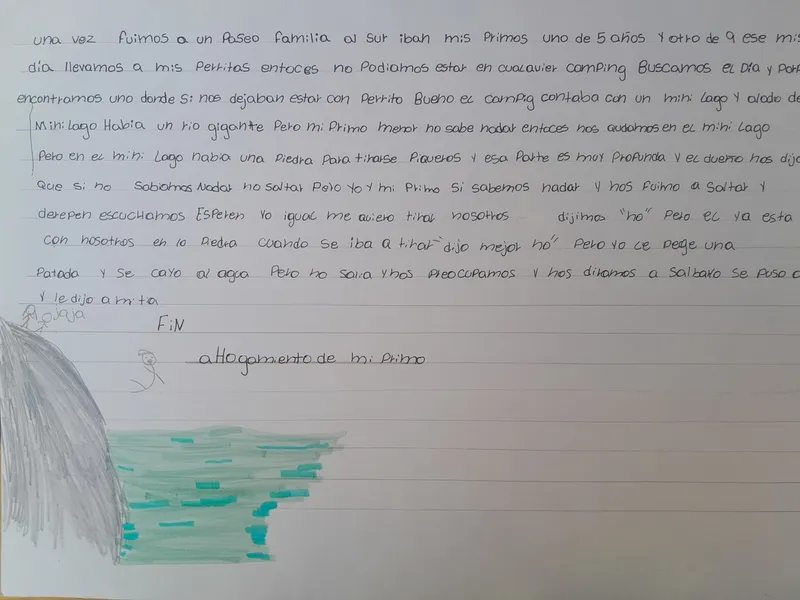 una vez fuimos a un Paseo familia al sur iban mis Primos uno de 5 años y otro de 9 ese mis
día llevamos a mis Perritas entoces no Podiamos estar en cualquier camping Buscamos el Día y Por
encontramos uno donde si nos dejaban estar con Perrito Bueno el campig contaba con un mini lago y alado de
Mini Lago Había un rio gigante Pero mi Primo menor no sabe nadar entoces nos quedamos en el mini Lago
Pero en el mini Lago había una Piedra Para tirarse Piqueros y esa Parte es muy Profunda y el dueño nos dijo
Que si no Sabiamos Nadar no saltar Pero Yo y mi Primo si sabemos nadar y nos fuimo a saltar y
derepen escuchamos Esperen Yo igual me quiero tirar nosotros dijimos "no" Pero el ya esta
con nosotros en la Piedra cuando se iba a tirar "dijo mejor no" Pero yo le Pege una
Patada y se cayo al agua Pero no salia y nos Preocupamos y nos diramos a Salbarlo se Puso a
y le dijo a mi tia
jaja
FIN
aHogamiento de mi Primo